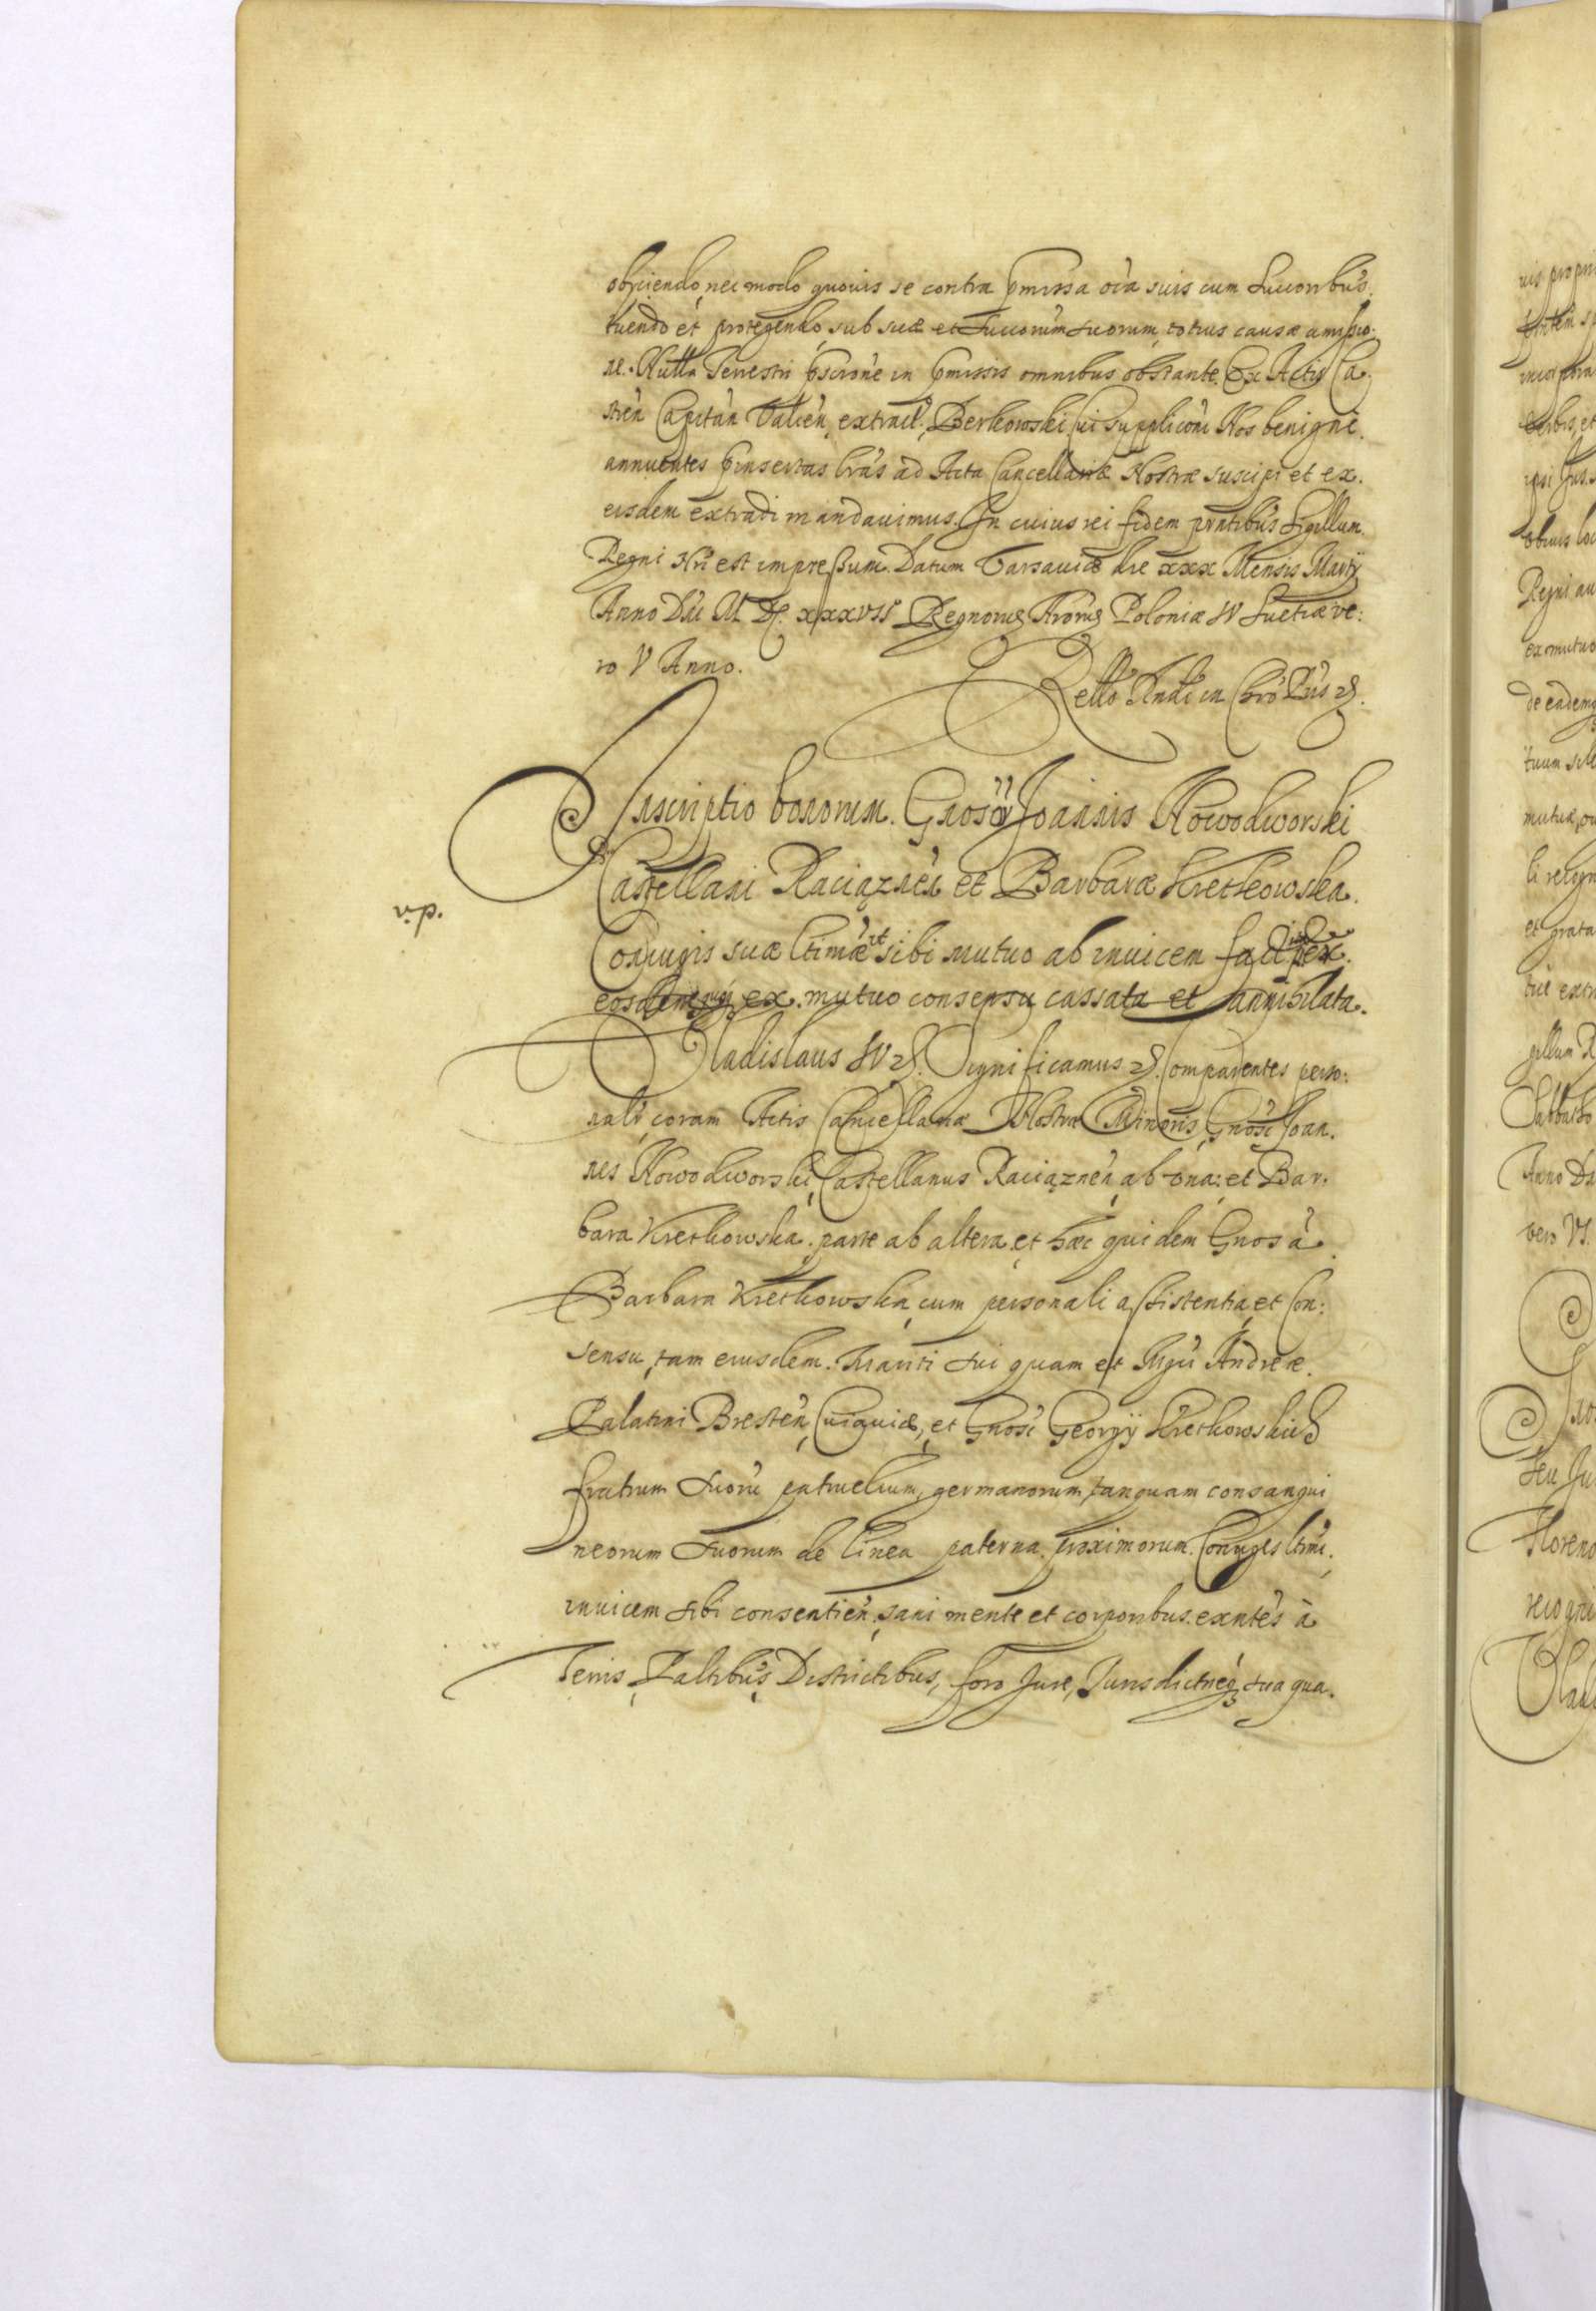 obijciendo, nec modo quovis se contra pmissa oia suis cum Succoribus.
tuendo et protegendo, sub suæ et Succorum suorum, totius causæ amissio:
ne. Nulla Terrestri pscrione in pmissis omnibus obstante. Ex Actis Ca:
stren Capitan Valcen, extract. Berkowski Cui Suppliconi Nos benigne.
annuentes pinsertas lras ad Acta Cancellariæ Nostræ suscipi et ex.
eisdem extradi mandavimus. In cuius rei fidem pntibus Sigillum.
Regni Nri est impressum. Datum Varsaviæ die xxx Mensis Martij
Anno Dni M. DC. xxxvii Regnorum Nrorum Poloniæ IV Suetiæ ve:
ro V Anno.
Inscriptio bonorum. Gnosor Joannis Nowodworski
Castellani Raciąznen et Barbaræ Kretkowska.
Conjugis suæ ltimæ sibi mutuo ab invicem
ex. mutuo consensu cassata et annihilata.
Vladislaus IV. Significamus. Comparentes perso:
nalr coram Actis Cancellariæ Nostræ Minoris, Gnosi Joan.
nes Nowodworski, Castellanus Raciąznen, ab vna: et Bar.
bara Kretkowska. parte ab altera, et hæc quidem Gnosa
Barbara Kretkowska, cum personali assistentia, et Con:
sensu, tam eiusdem. Mariti sui quam et Mgci Andreæ.
Palatini Bresten, Cuiaviæ, et Gnosi Georgij Kretkowskich
fratrum suoru patruelium, germanorum, tanquam consangui
neorum suorum de linea paterna. proximorum. Conjuges ltimi.
invicem sibi consentien, sani mente et corporibus. exntes à
Terris Paltibus Districtibus, foro Jure, Jurisdictneq, sua qua.